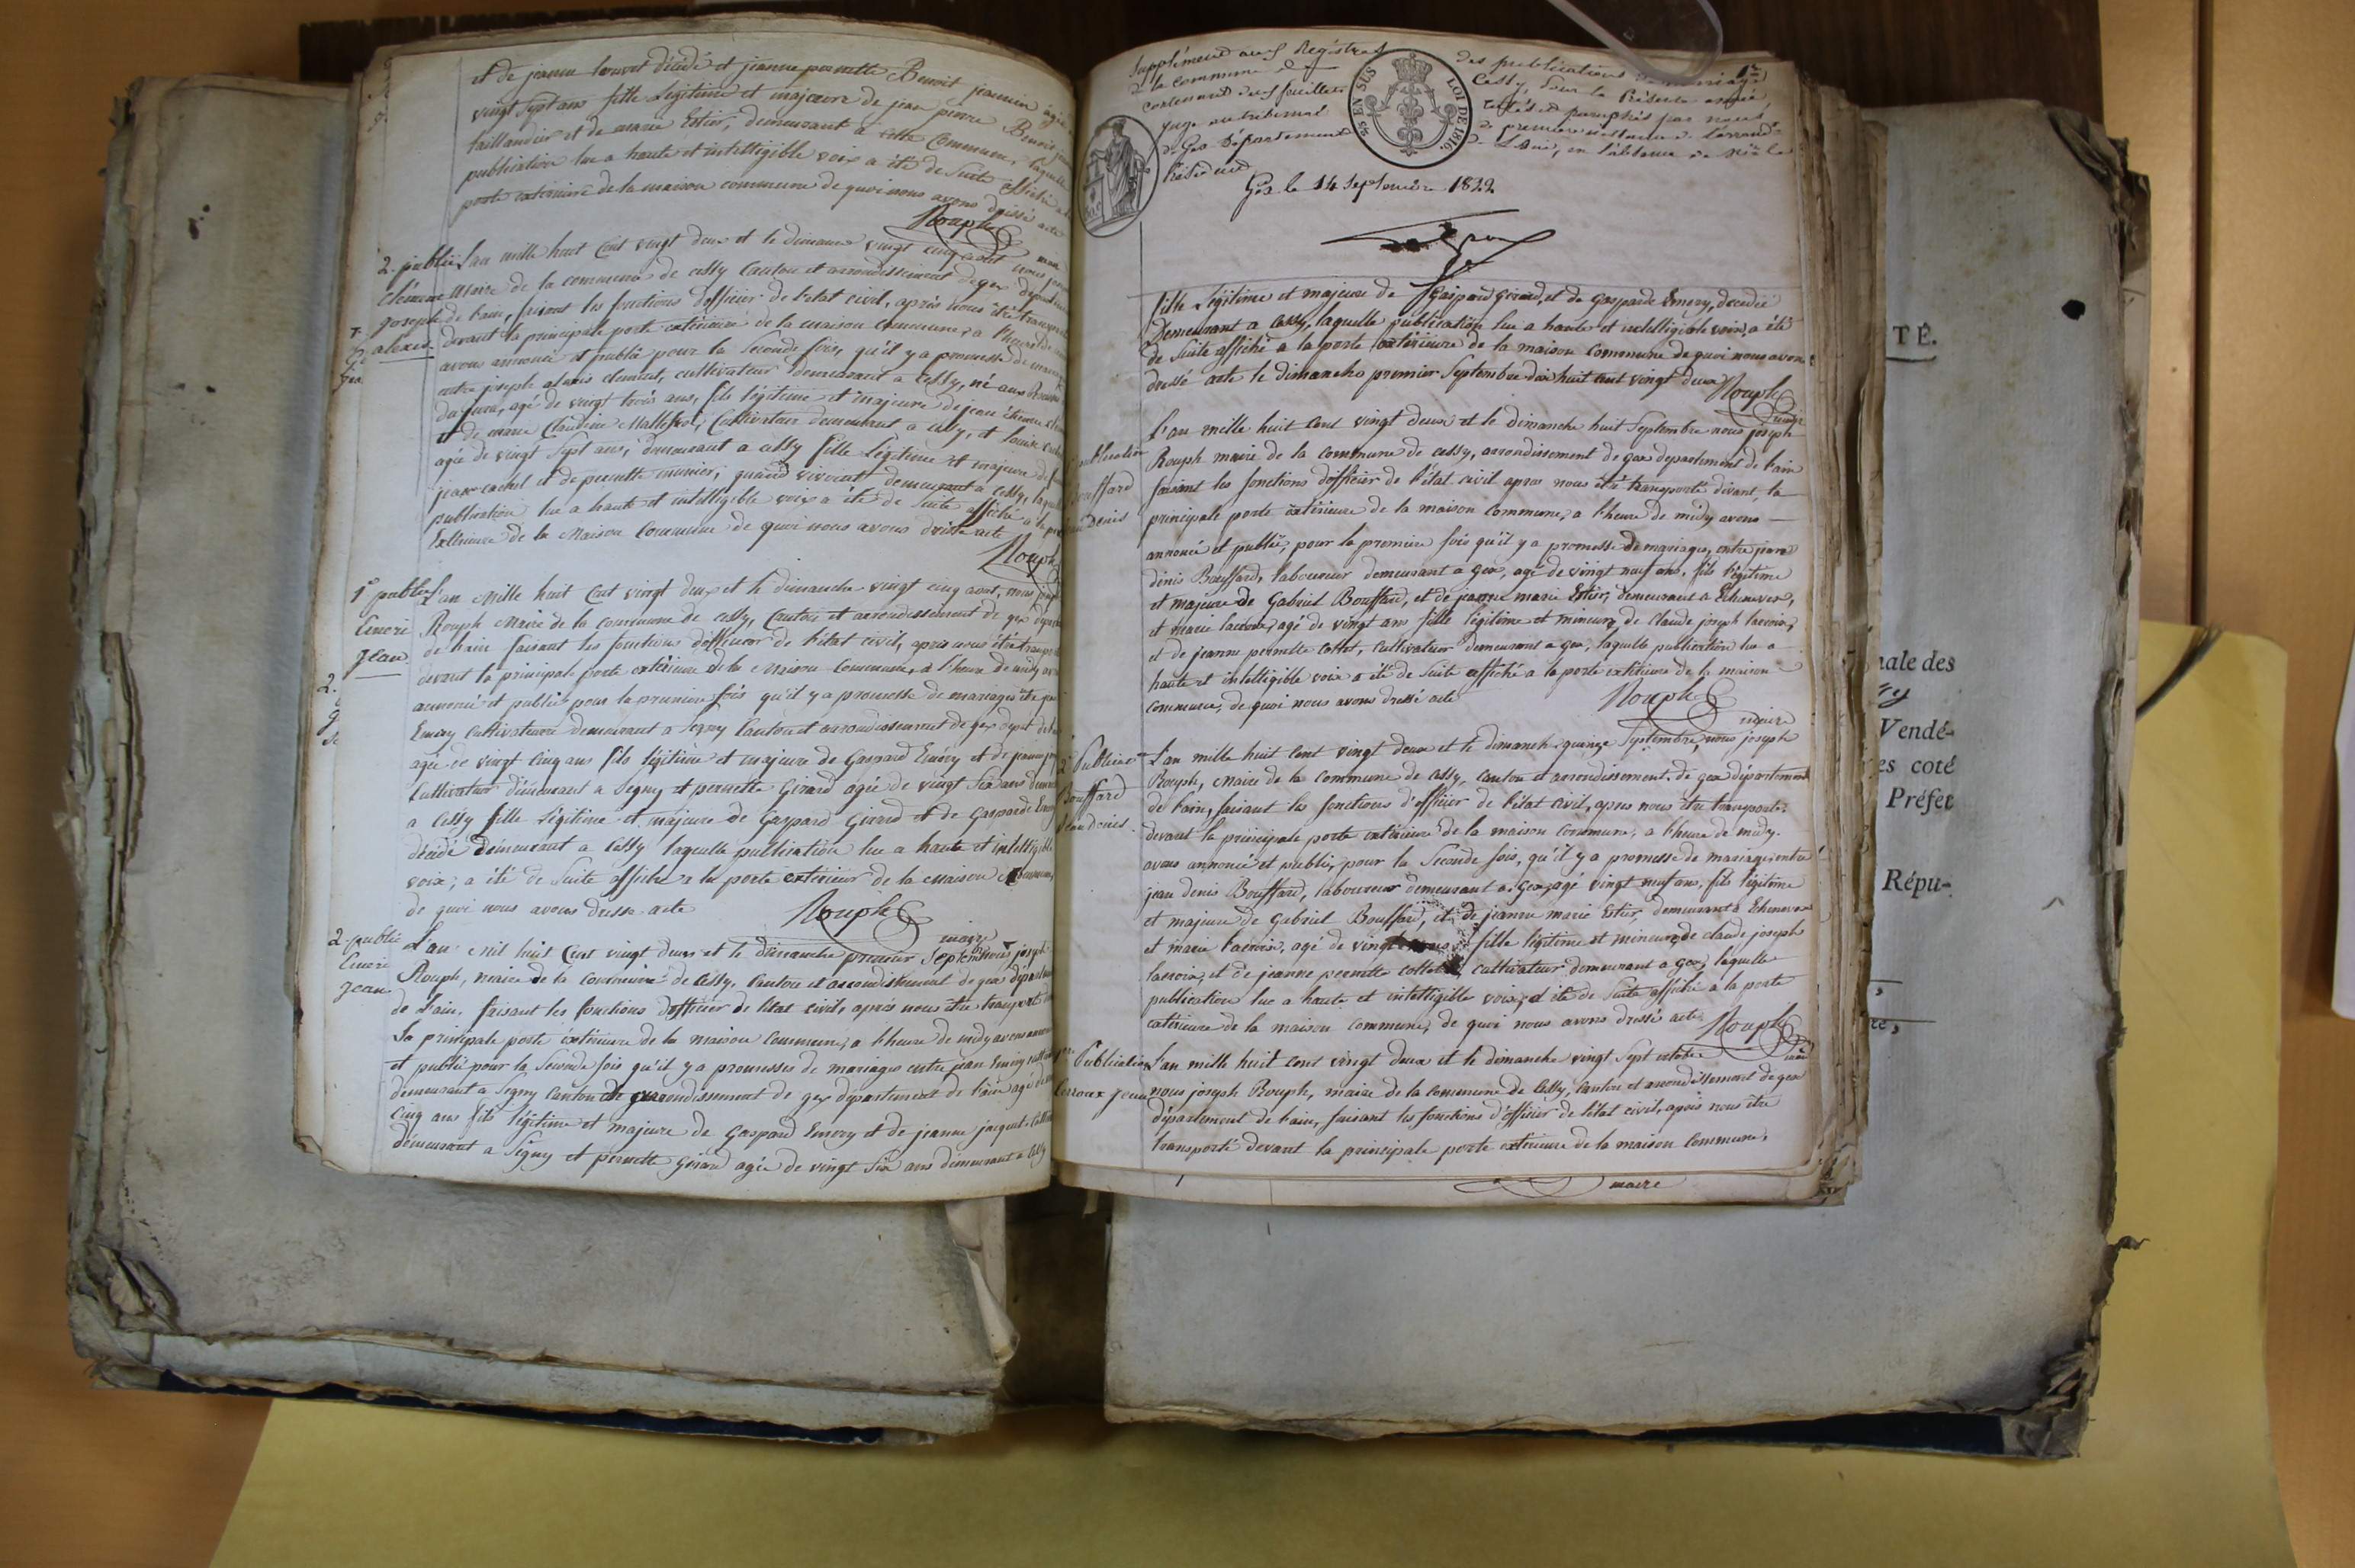 et de jeanne louvet décédé et jeanne pernette Benoit jeannin agée
vingt sept ans fille Légitime et majeure de jean pierre Benoit
taillandier et de marie Estier, demeurant a cette Commune, laquelle
publication lue a haute et intelligible voix a été de Suite affiché a la
porte exterieure de la maison commune de quoi nous avons dressé acte
Rouph
maire
2. public
Clément
Joseph
alexis
L'an mille huit Cent vingt deux et le dimanche vingt cinq aout nous
Maire de la commune de cessy Canton et arrondissement de gex
de l'ain, faisant les fonctions d'officier de l'etat civil, après nous être transporté
devant la principale porte extérieure de la maison Commune, a l'heure de
avons annoncé et publié pour la Seconde fois, qu'il y a promesse de mariage
entre joseph alexis clement, cultivateur demeurant a Cessy, né aux
du jura, agé de vingt trois ans, fils légitime et majeure de jean
et de marie Claudine Cultivateur demeurant a cessy, et Louise
agée de vingt Sept ans, demeurant a cessy fille Légitime et majeure de
jean et de pernette quand vivoient demeurant a Cessy, laquelle
publication lue a haute et intelligible voix a été de Suite affiché a la
Extérieure de la Maison Commune de quoi nous avons dressé acte
Rouph
1e public
Emeri
Jean
L'an Mille huit Cent vingt deux et le dimanche vingt cinq aout, nous
Rouph Maire de la commune de cessy, Canton et arrondissement de gex
de l'ain faisant les fonctions d'officier de l'état civil, après nous être
devant la principale porte extérieure de la Maison Commune, a l'heure de midy
annoncé et publié pour la premiere fois qu'il y a promesse de mariages
Emery Cultivateur demeurant a Segny Canton et arrondissement de gex
agé de vingt Cinq ans fils légitime et majeure de Gaspard Emery et de jeanne
Cultivateur demeurant a Segny et pernette Girard agée de vingt Six ans
a Cessy fille Légitime et majeure de Gaspard Girard et de Gasparde
décédé demeurant a Cessy laquelle publication lue a haute et intelligible
voix, a été de Suite affiché a la porte extérieur de la Maison Commune,
de quoi nous avons dressé acte
Rouph
maire
2. public
Emeri
Jean
L'an Mil huit Cent vingt deux et le dimanche premier Septembre nous joseph
Rouph, maire de la Commune de Cessy, Canton et arrondissement de gex
de l'ain, faisant les fonctions d'officier de l'état civil, après nous être transporté
La principale porte extérieure de la maison Commune, a l'heure de midy avons
et publié pour la Seconde fois qu'il y a promesses de mariages entre jean Emery
demeurant a Segny Canton et arrondissement de gex département de l'ain agé de
Cinq ans fils légitime et majeure de Gaspard Emery et de jeanne
demeurant a Segny et pernette Girard agée de vingt Six ans demeurant a Cessy
Supplément aux Registres des publications de mariage
de la Commune de Cessy, pour la Présente année,
contenant deux feuillets cotés et paraphés par nous
juge au tribunal de première instance de l'arrond.t
de Gex Département de L'ain, en l'absence de
Président
1er
75 EN SUS
LOI DE 1816.
Gex le 14 Septembre 1822
fille Légitime et majeure de Gaspard Girard, et de Gasparde Emery, décédée
Demeurant a Cessy, laquelle publication lue a haute et intelligible voix, a été
de Suite affiché a la porte extérieure de la maison Commune de quoi nous avons
dressé acte le dimanche premier Septembre dix huit cent vingt deux Rouph
maire
publication
Bouffard
Denis
L'an mille huit cent vingt deux et le dimanche huit Septembre nous joseph
Rouph maire de la commune de cessy, arrondissement de gex departement de l'ain
faisant les fonctions d'officier de l'état civil apres nous être transporté devant, la
principale porte extérieure de la maison commune, a l'heure de midy avons
annoncé et publié, pour la premiere fois qu'il y a promesse de mariages, entre jean
denis Bouffard, laboureur demeurant a gex, agé de vingt neuf ans, fils légitime
et majeure de Gabriel Bouffard, et de jeanne marie Estier, demeurant a Echenevex,
et marie lacroix, agé de vingt ans fille légitime et mineure, de Claude joseph lacroix,
et de jeanne pernette collet, Cultivateur demeurant a gex, laquelle publication lue a
haute et intelligible voix a été de Suite affiché a la porte extérieure de la maison
commune, de quoi nous avons dressé acte
Rouph
maire
2e Publication
Bouffard
Jean Denis
L'an mille huit cent vingt deux et le dimanche quinze Septembre, nous joseph
Rouph, Maire de la commune de cessy, canton et arrondissement de gex département
de l'ain, faisant les fonctions d'officier de l'état civil, apres nous être transporté
devant la principale porte extérieure de la maison commune, a l'heure de midy.
avons annoncé et publié, pour la Seconde fois, qu'il y a promesse de mariages, entre
jean denis Bouffard, laboureur demeurant a Gex, agé vingt neuf ans, fils légitime
et majeure de Gabriel Bouffard, et de jeanne marie Estier, demeurant a Echenevex
et marie lacroix, agé de vingt fille légitime et mineure, de claude joseph
lacroix, et de jeanne pernette collet cultivateur demeurant a gex, laquelle
publication lue a haute et intelligible voix, a été de Suite affiché a la porte
extérieure de la maison commune, de quoi nous avons dressé acte. Rouph
maire
1re Publication
Jean
L'an mille huit cent vingt deux et le dimanche vingt Sept octobre
nous joseph Rouph, maire de la commune de Cessy, canton et arrondissement de gex
département de l'ain, faisant les fonctions d'officier de l'état civil, après nous être
transporté devant la principale porte extérieure de la maison commune,
maire
TÉ.
nale des
Vendé-
es coté
Préfet
Répu-